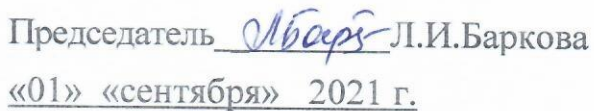 Председатель Л.И.Баркова
«01» «сентября» 2021 г.